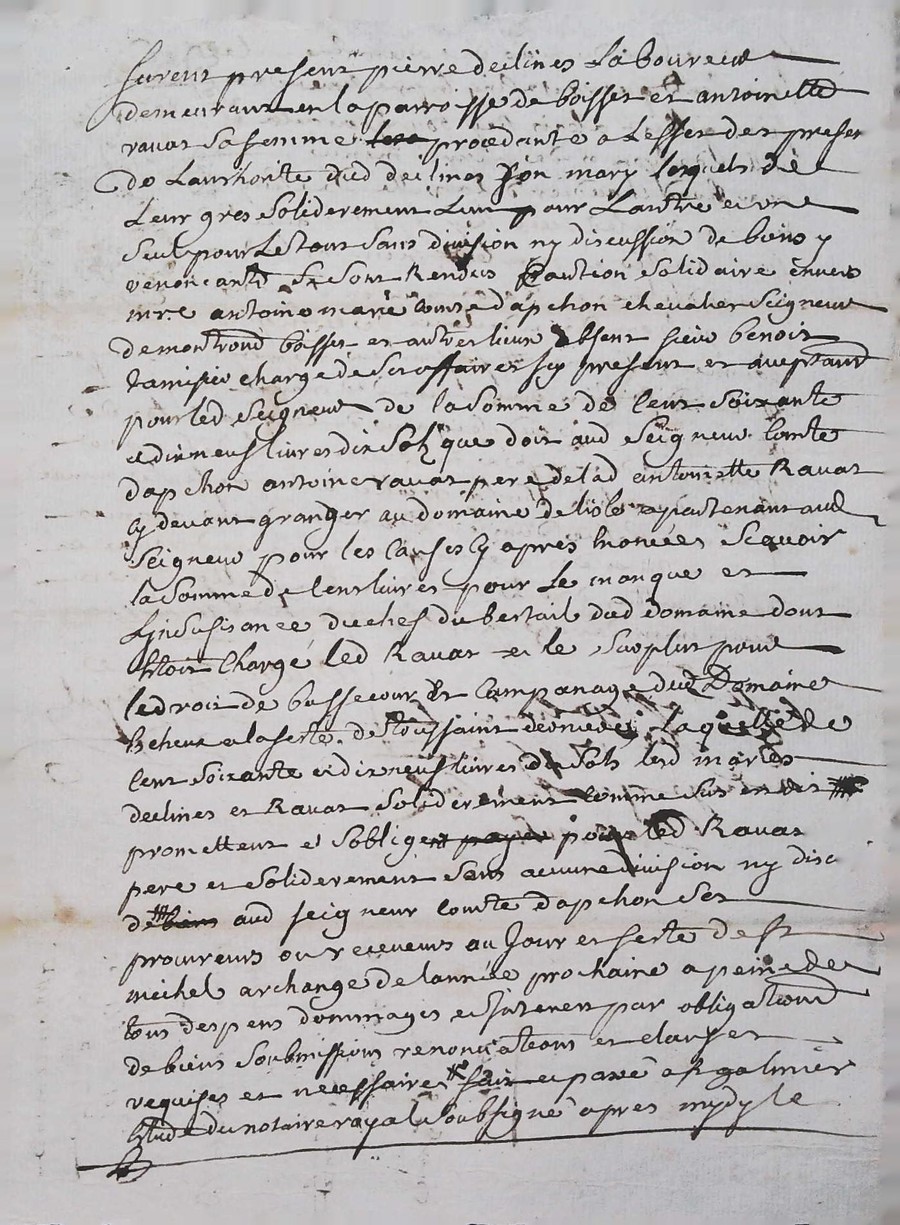 furent presents pierre declines laboureur
demeurant en la parroisse de boisset et antoinette
ravat sa femme procedante a leffet des presen
de lauthorite dud declines son mary lesquels de
leur gre soliderement lun pour lautre et un
seul pour le tout sans division ny discussion de biens y
renoncants se sont Rendus Caution solidaire envers
mre antoine marie comte dapchon chevalier seigneur
de montrond boisset et autres lieux absent sieur benoit
charge de ses affaires icy present et aceptant
pour led seigneur de la somme de cent soixante
et dix neuf livres dix sols que doit aud seigneur Comte
dapchon antoine ravat pere de lad antoinette Ravat
cy devant granger au domaine de lisle apartenant aud
seigneur pour les causes cy apres scavoir
la somme de cent livres pour le manque et
Linsufisance du chef du bestail dud domaine dont
estoit Charge led Ravat et le surplus pour
le droit de bassecour et Campanage dud Domaine
Escheux a la feste de toussaint laquelle de
Cent soixante et dix neuf livres dix sols lesd maries
declines et Ravat soliderement comme sus est dit
promettent et sobligent payer pour led Ravat
pere et soliderement sans aucune division ny disc
de biens aud seigneur Comte dapchon ses
procureurs ou receveurs au Jour et feste de st
michel archange de lannée prochaine a peine de
tous despens dommages et interest par obligations
de biens soubmissions renonciations et clauses
requises et necessaires fait et passé a St galmier
Estude du notaire royal soubsigné apres midy le